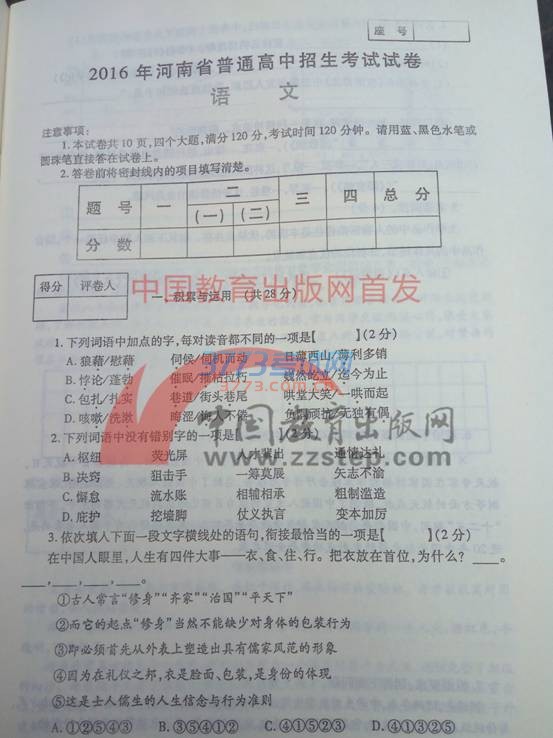 座 号
2016 年河南省普通高中招生考试试卷
语 文
注意事项：
1.本试卷共10页,四个大题,满分120分,考试时间120分钟。请用蓝、黑色水笔或
圆珠笔直接答在试卷上。
2.答卷前将密封线内的项目填写清楚。
题 号 一 二 三 四 总 分
(一) (二)
分 数
得分 评卷人
中国教育出版网首发
一、积累与运用 (共28分)
1.下列词语中加点的字,每对读音都不同的一项是【 】(2分)
A.狼藉/慰藉 伺候/伺机而动 日薄西山/薄利多销
B.悖论/蓬勃 催眠/摧枯拉朽 巍然屹立/迄今为止
C.包扎/扎实 巷道/街头巷尾 哄堂大笑/一哄而起
D.咳嗽/洗漱 晦涩/诲人不倦 负隅顽抗/无独有偶
3773考试网
www.3773.com.cn
中国教育出版网
www.zzstep.com
2.下列词语中没有错别字的一项是【 】(2分)
A.枢纽 荧光屏 人才辈出 通情达礼
B.决窍 狙击手 一筹莫展 矢志不渝
C.懈怠 流水账 相辅相承 粗制滥造
D.庇护 挖墙脚 仗义执言 变本加厉
3.依次填入下面一段文字横线处的语句,衔接最恰当的一项是【 】(2分)
在中国人眼里,人生有四件大事——衣、食、住、行。把衣放在首位,为什么? ___。
___,___,___,___。
①古人常言“修身”“齐家”“治国”“平天下”
②而它的起点“修身”当然不能缺少对身体的包装行为
③即必须首先从外表上塑造出具有儒家风范的形象
④因为在礼仪之邦,衣是脸面、包装,是身份的体现
⑤这是士人儒生的人生信念与行为准则
A.①②⑤④③ B.③⑤④①② C.④①⑤②③ D.④①③②⑤